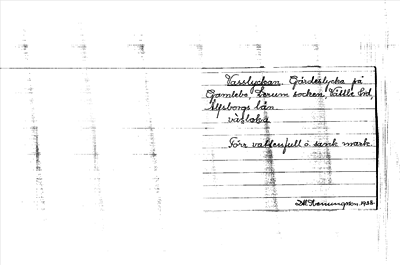 Vasslyckan. Gärdeslycka på
Gamlebo, Lerum socken, Vättle hd,
Älfsborgs län.
vàsløka
Förr vattenfull o. sank mark.
1938.